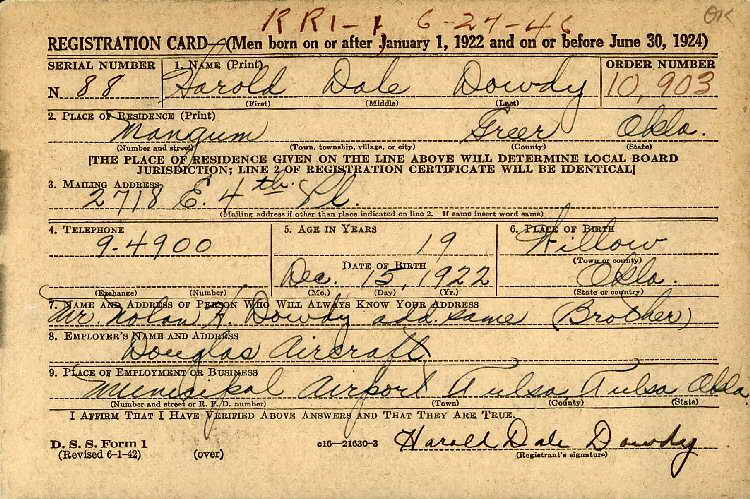 RR1-1 6-27-46 OK
REGISTRATION CARD—(Men born on or after January 1, 1922 and on or before June 30, 1924)
SERIAL NUMBER 1. NAME (Print) ORDER NUMBER
N 88 Harold Dale Dowdy 10,903
(First) (Middle) (Last)
2. PLACE OF RESIDENCE (Print)
Mangum Greer Okla.
(Number and street) (Town, township, village, or city) (County) (State)
[THE PLACE OF RESIDENCE GIVEN ON THE LINE ABOVE WILL DETERMINE LOCAL BOARD
JURISDICTION; LINE 2 OF REGISTRATION CERTIFICATE WILL BE IDENTICAL]
3. MAILING ADDRESS
2718 E. 4th Pl.
(Mailing address if other than place indicated on line 2. If same insert word same)
4. TELEPHONE 5. AGE IN YEARS 6. PLACE OF BIRTH
9-4900 19 Willow
DATE OF BIRTH (Town or county)
Dec. 15, 1922 Okla.
(Exchange) (Number) (Mo.) (Day) (Yr.) (State or country)
7. NAME AND ADDRESS OF PERSON WHO WILL ALWAYS KNOW YOUR ADDRESS
Mr Nolan H. Dowdy add. same (Brother)
8. EMPLOYER'S NAME AND ADDRESS
Douglas Aircraft
9. PLACE OF EMPLOYMENT OR BUSINESS
Municipal Airport Tulsa Tulsa Okla.
(Number and street or R. F. D. number) (Town) (County) (State)
I AFFIRM THAT I HAVE VERIFIED ABOVE ANSWERS AND THAT THEY ARE TRUE.
D. S. S. Form 1 c16—21630-3 Harold Dale Dowdy
(Revised 6-1-42) (over) (Registrant's signature)